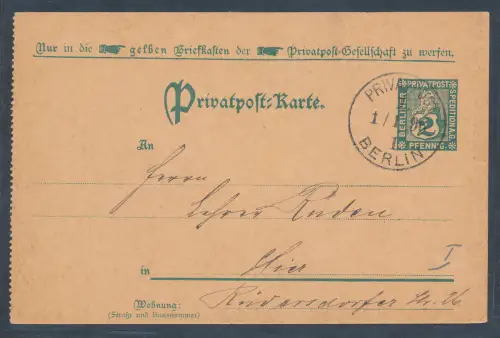 Nur in die gelben Briefkasten der Privatpost-Gesellschaft zu werfen.
Privatpost-Karte.
PRIVATPOST
BERLINER
SPEDITION A.G.
2
PFENNIG.
PRIVA
1/1
BERLIN
An
Herrn
Lehrer Rüden
in Hier
I
Wohnung: Rüdersdorfer Str. 26
(Straße und Hausnummer)